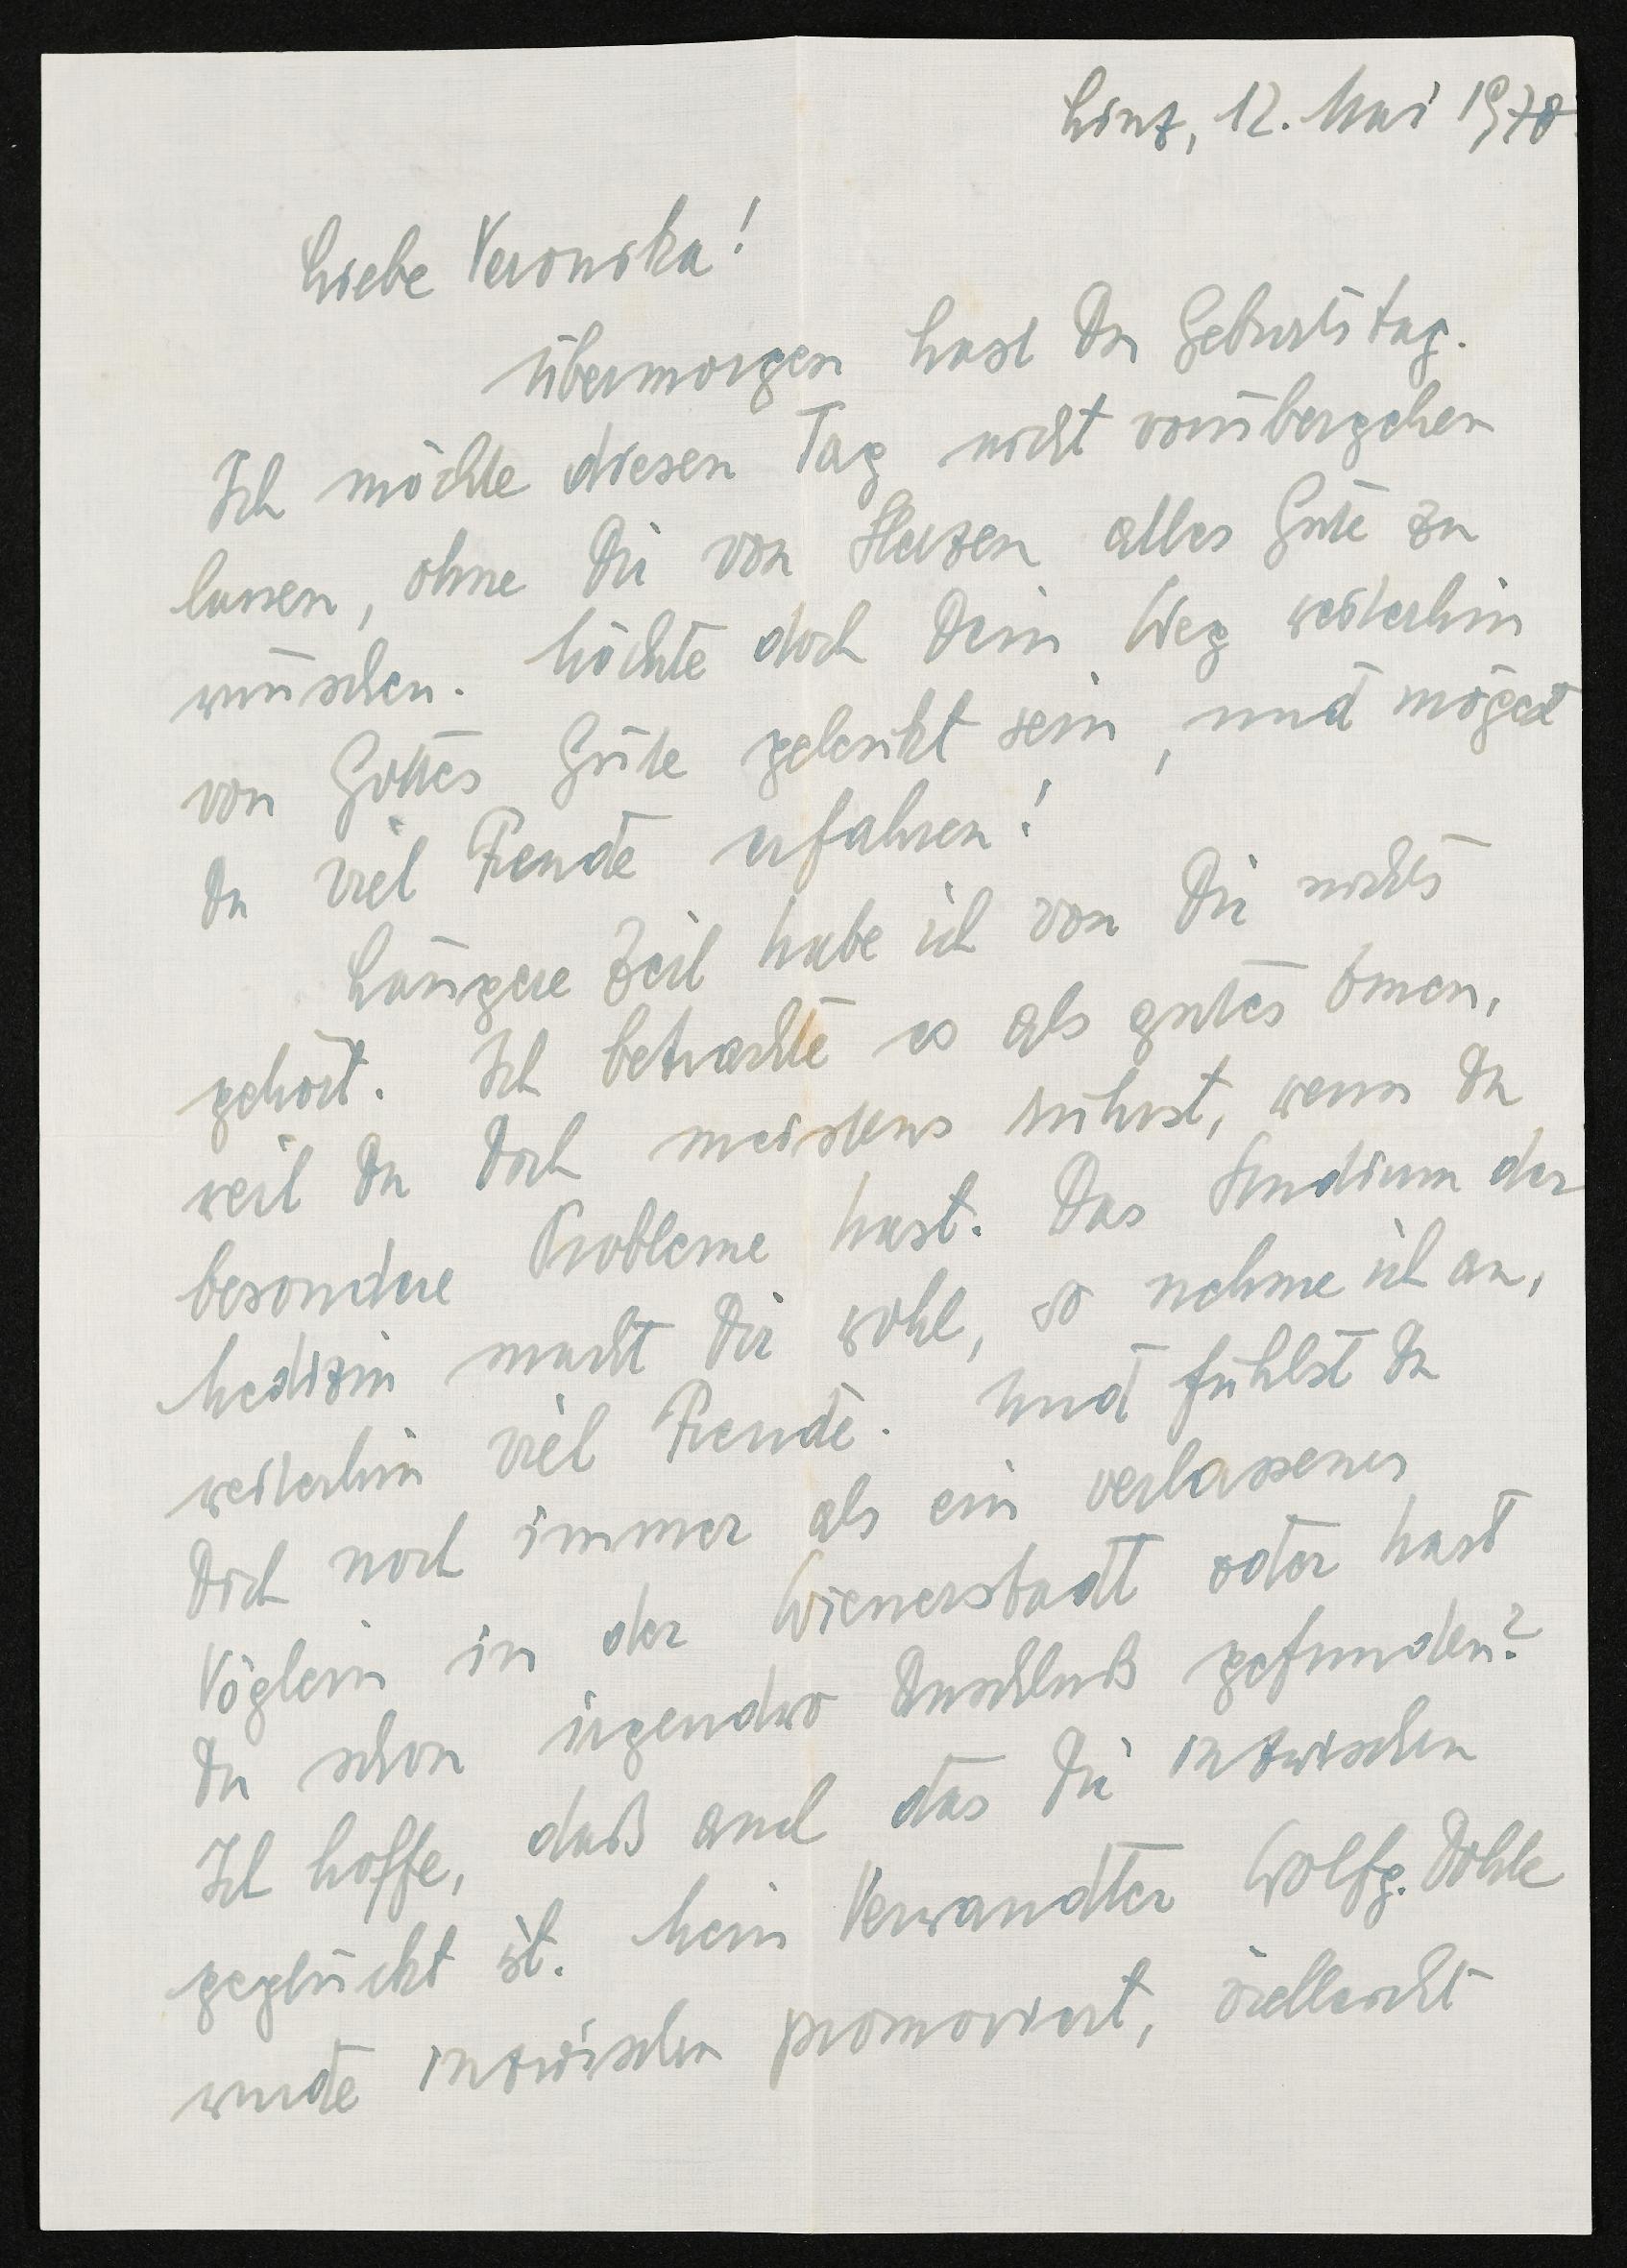 Linz, 12. Mai 1970
Liebe Veronika!
Übermorgen hast Du Geburtstag.
Ich möchte diesen Tag nicht vorübergehen
lassen, ohne Dir von Herzen alles Gute zu
wünschen. Möchte doch Dein Weg weiterhin
von Gottes Güte gelenkt sein, und mögest
Du viel Freude erfahren!
Längere Zeit habe ich von Dir nichts
gehört. Ich betrachte es als gutes Omen,
weil Du Dich meistens rührst, wenn Du
besondere Probleme hast. Das Studium der
Medizin macht Dir wohl, so nehme ich an,
weiterhin viel Freude. Und fühlst Du
Dich noch immer als ein verlassenes
Vöglein in der Wienerstadt oder hast
Du schon irgendwo Anschluß gefunden?
Ich hoffe, daß auch das Dir inzwischen
geglückt ist. Mein Verwandter Wolfg. Dohle
wurde inzwischen promoviert, vielleicht